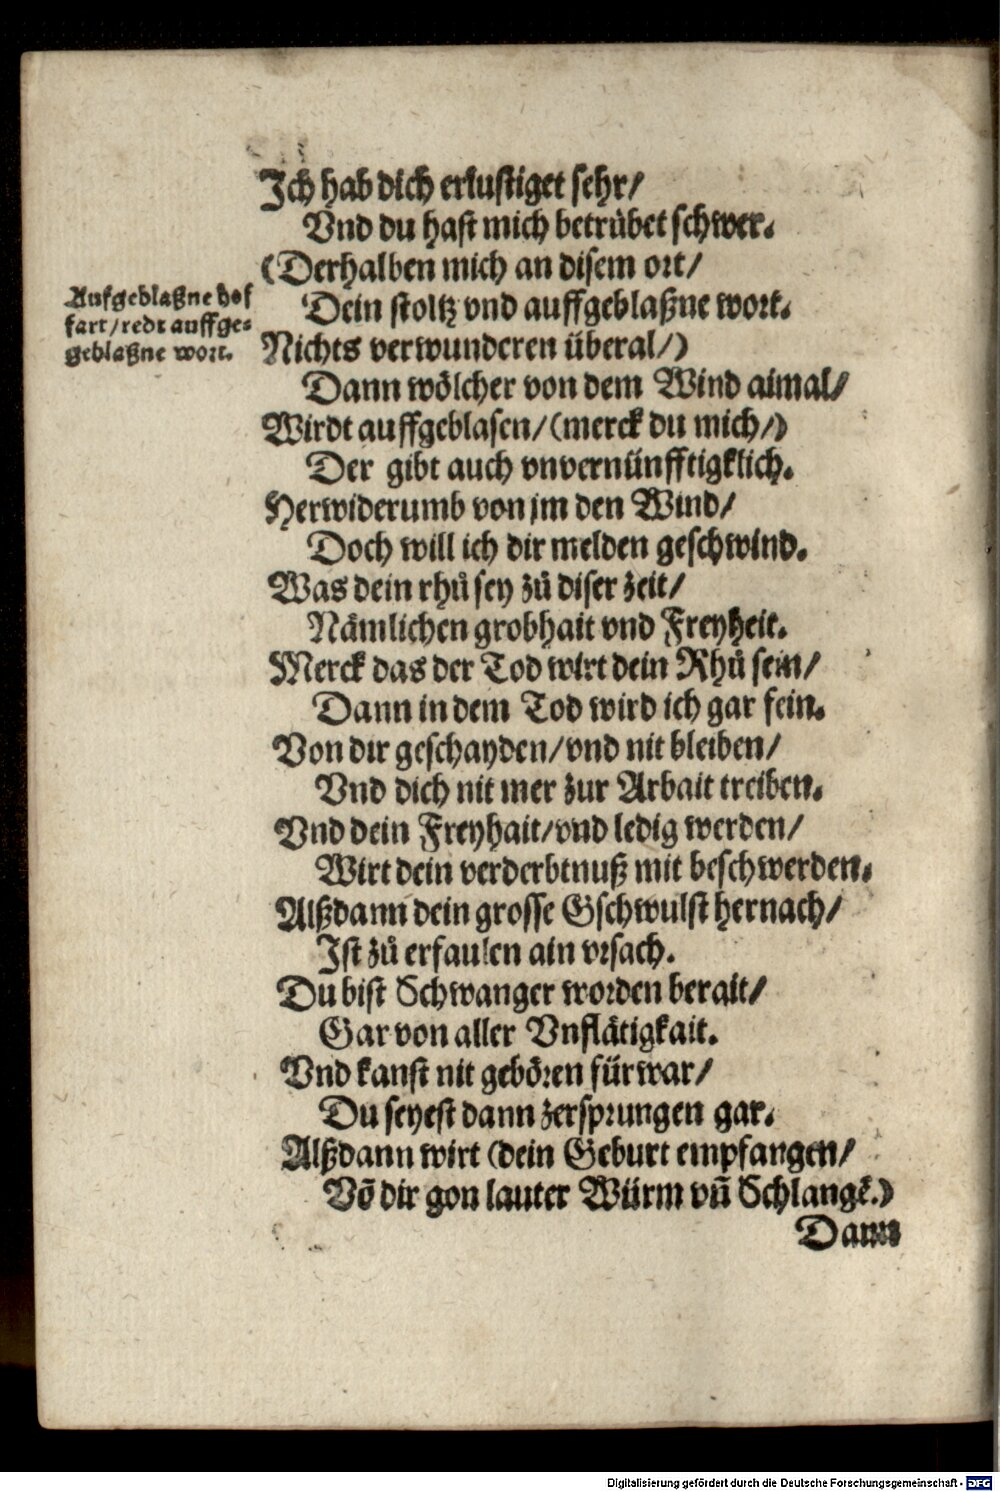 Ich hab dich erlustiget sehr/
Vnd du hast mich betrübet schwer.
(Derhalben mich an disem ort/
Dein stoltz vnd auffgeblaßne wort.
Aufgeblaßne hof
fart/redt auffge-
geblaßne wort.
Nichts verwunderen überal/)
Dann wölcher von dem Wind aimal/
Wirdt auffgeblasen/(merck du mich/)
Der gibt auch vnvernünfftigklich.
Herwiderumb von jm den Wind/
Doch will ich dir melden geschwind.
Was dein rhů sey zů diser zeit/
Nämlichen grobhait vnd Freyheit.
Merck das der Tod wirt dein Rhů sein/
Dann in dem Tod wird ich gar fein.
Von dir geschayden/vnd nit bleiben/
Vnd dich nit mer zur Arbait treiben.
Vnd dein Freyhait/vnd ledig werden/
Wirt dein verderbtnuß mit beschwerden.
Alßdann dein grosse Gschwulst hernach/
Ist zů erfaulen ain vrsach.
Du bist Schwanger worden berait/
Gar von aller Vnflätigkait.
Vnd kanst nit gebören fürwar/
Du seyest dann zersprungen gar.
Alßdann wirt (dein Geburt empfangen/
Võ dir gon lauter Würm vñ Schlangẽ.)
Dann
Digitalisierung gefördert durch die Deutsche Forschungsgemeinschaft - DFG